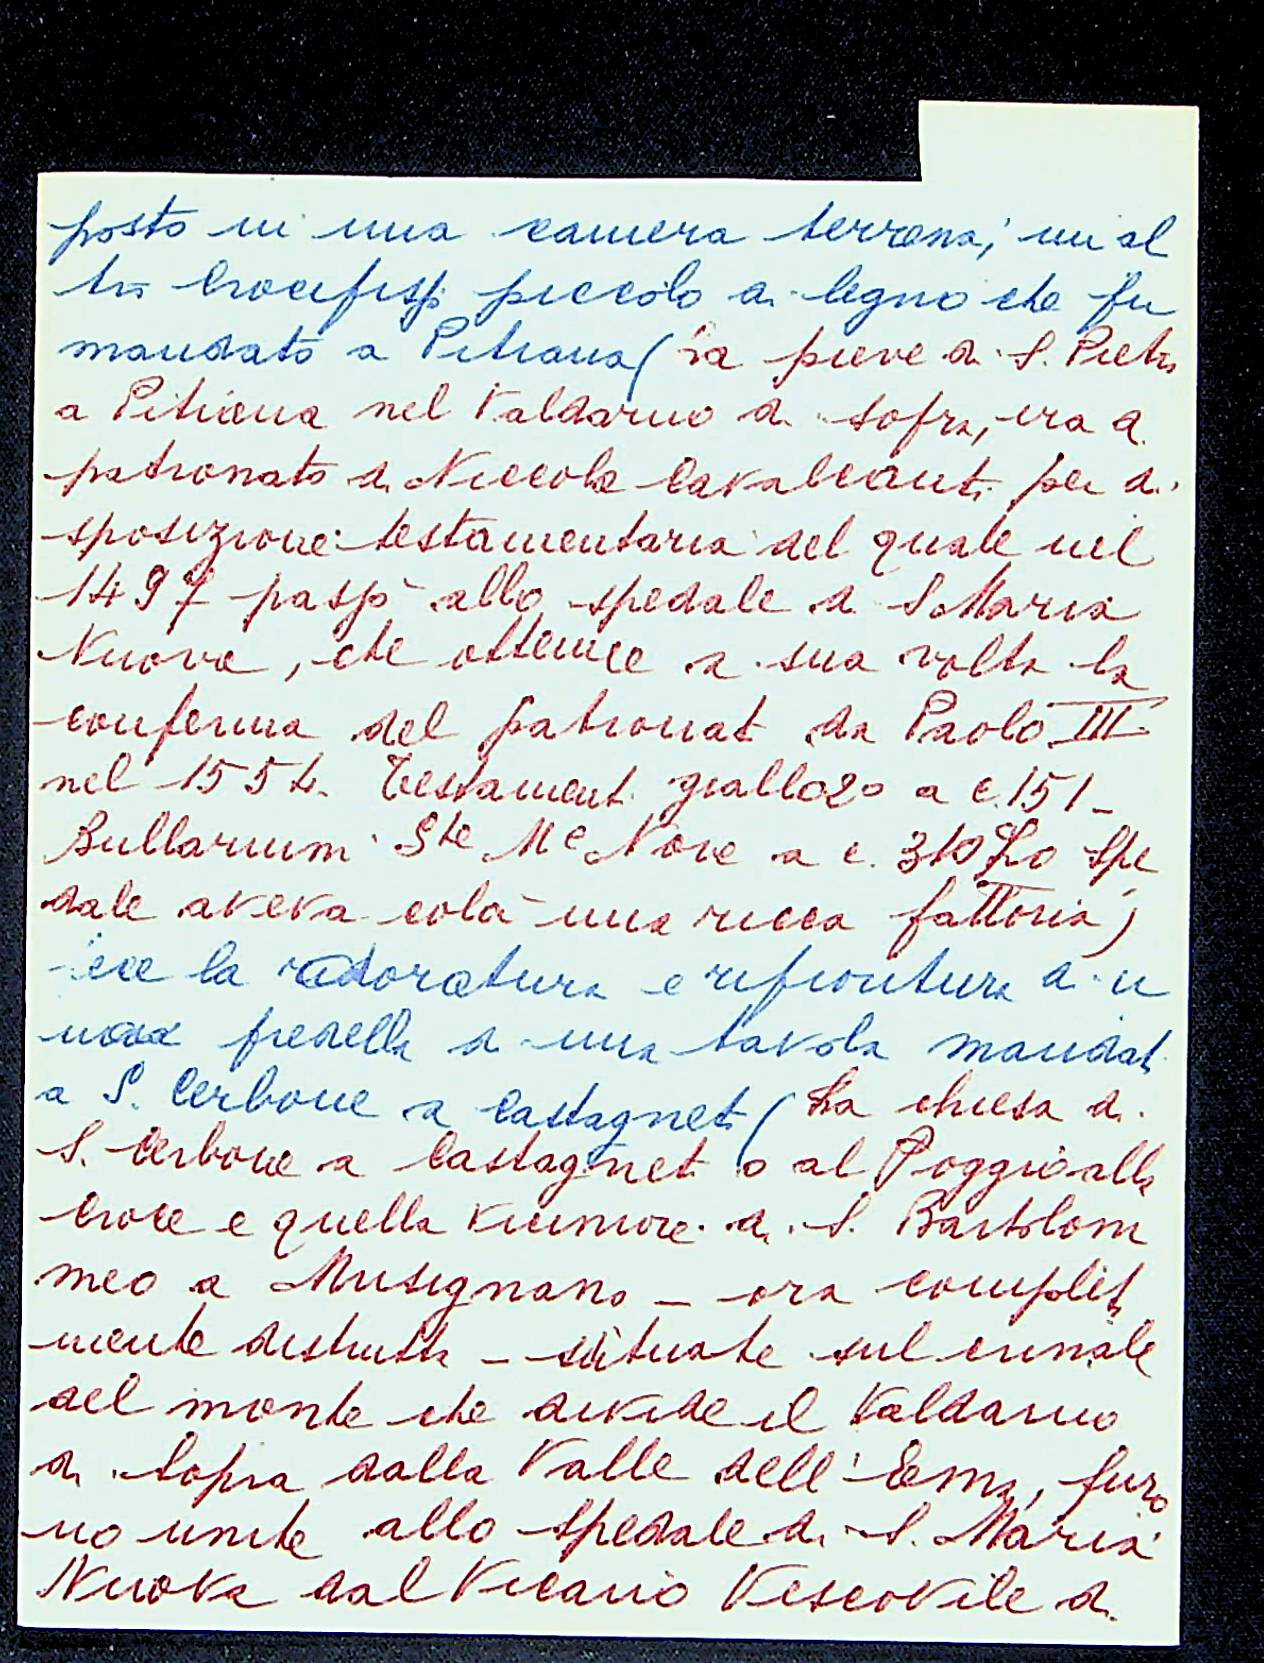 posto in una camera terrena; un al
tro Crocifisso piccolo di legno che fu
mandato a Pitiana (la pieve di S. Pietro
a Pitiana nel Valdarno di sopra, era di
patronato di Niccolo Cavalcanti per di
sposizione testamentaria del quale nel
1497 passò allo spedale di S Maria
Nuova, che ottenne a sua volta la
conferma del patronato da Paolo III
nel 1554. Testamenti giallo 20 a c. 151 -
Bullarium Ste Me Nove a c. 310 Lo Spe
dale aveva colà una ricca fattoria)
la radoratura e rifioritura di u
na predella di una tavola mandata
a S. Cerbone a Castagneto (La chiesa di
S. Cerbone a Castagneto o al Poggio alla
Croce e quella vicinore di S. Bartolom
meo a Musignano - ora completa
mente distrutta - situate sul crinale
del monte che divide il Valdarno
di Sopra dalla Valle dell'Ema, furo
no unite allo spedale di S. Maria
Nuova dal Vicario Vescovile di